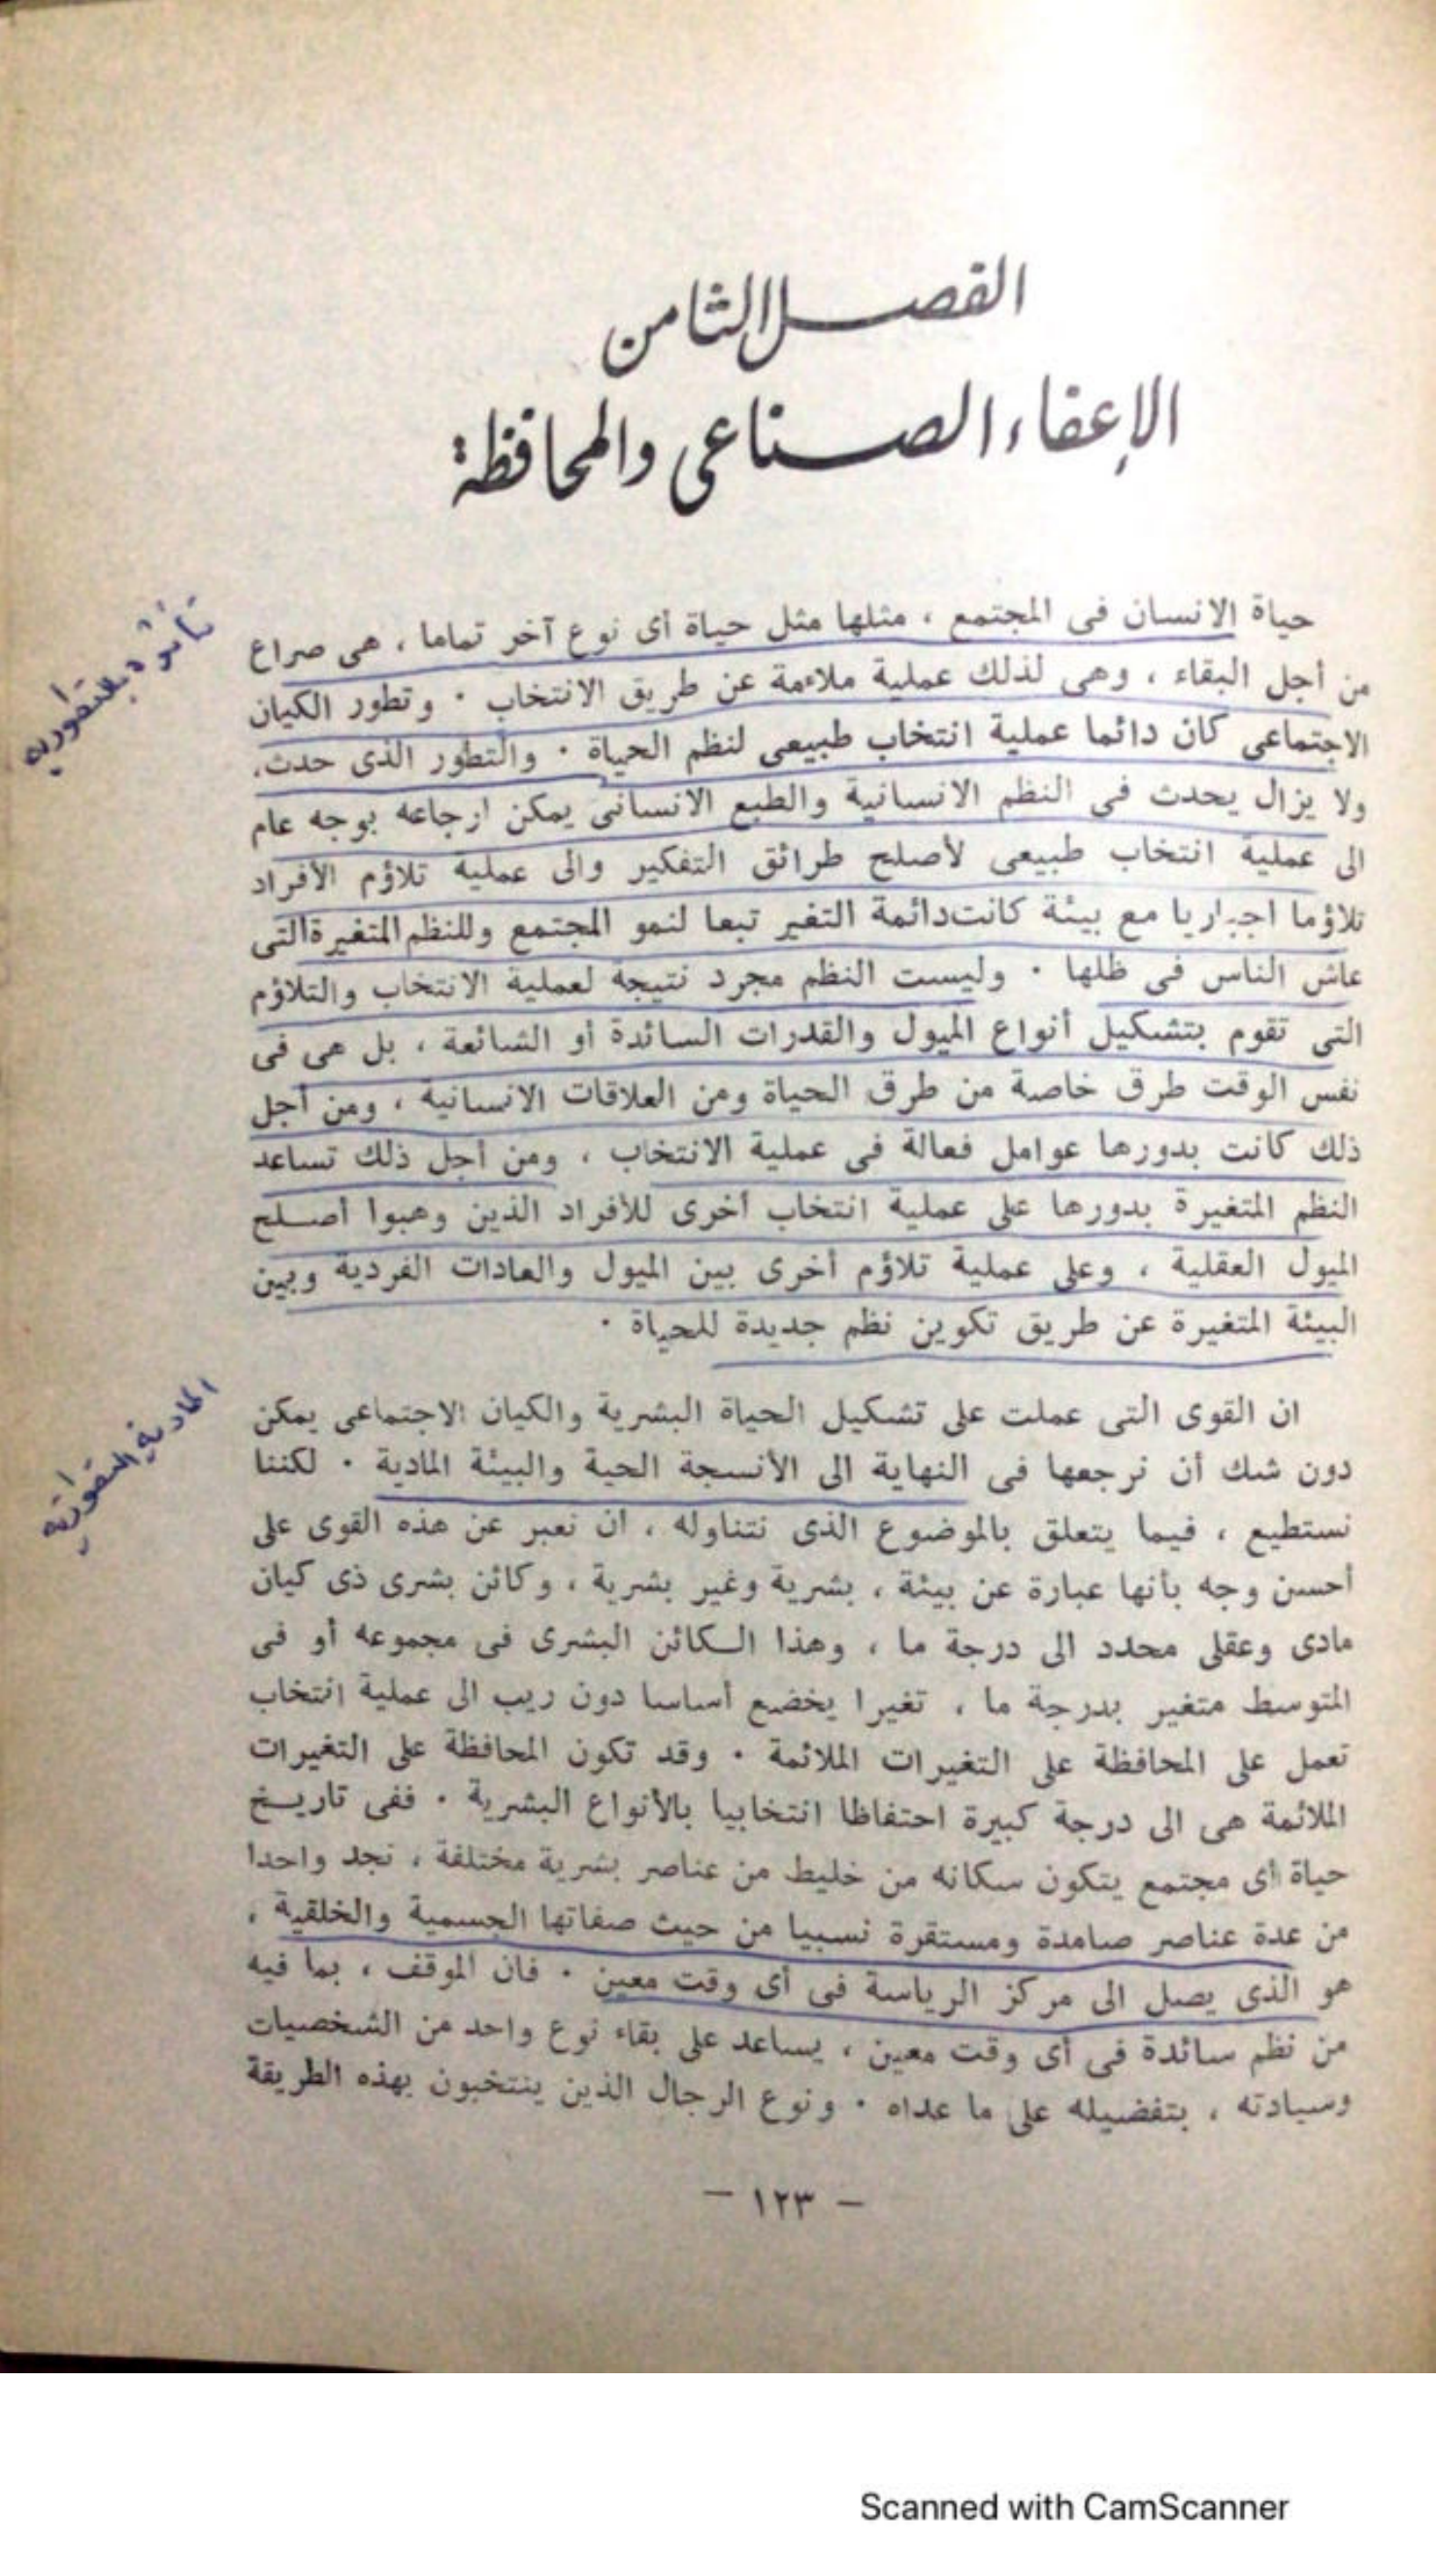 الفصل الثامن
الإعفاء الصناعى والمحافظة
حياة الانسان فى المجتمع ، مثلها مثل حياة أى نوع آخر تماما ، هى صراع
من أجل البقاء ، وهى لذلك عملية ملاءمة عن طريق الانتخاب ٠ وتطور الكيان
الاجتماعى كان دائما عملية انتخاب طبيعى لنظم الحياة ٠ والتطور الذى حدث،
ولا يزال يحدث فى النظم الانسانية والطبع الانسانى يمكن ارجاعه بوجه عام
الى عملية انتخاب طبيعى لأصلح طرائق التفكير والى عملية تلاؤم الأفراد
تلاؤما اجباريا مع بيئة كانت دائمة التغير تبعا لنمو المجتمع وللنظم المتغيرة التى
عاش الناس فى ظلها ٠ وليست النظم مجرد نتيجة لعملية الانتخاب والتلاؤم
التى تقوم بتشكيل أنواع الميول والقدرات السائدة أو الشائعة ، بل هى فى
نفس الوقت طرق خاصة من طرق الحياة ومن العلاقات الانسانية ، ومن أجل
ذلك كانت بدورها عوامل فعالة فى عملية الانتخاب ، ومن أجل ذلك تساعد
النظم المتغيرة بدورها على عملية انتخاب أخرى للأفراد الذين وهبوا أصلح
الميول العقلية ، وعلى عملية تلاؤم أخرى بين الميول والعادات الفردية وبين
البيئة المتغيرة عن طريق تكوين نظم جديدة للحياة ٠
ان القوى التى عملت على تشكيل الحياة البشرية والكيان الاجتماعى يمكن
دون شك أن نرجعها فى النهاية الى الأنسجة الحية والبيئة المادية ٠ لكننا
نستطيع ، فيما يتعلق بالموضوع الذى نتناوله ، أن نعبر عن هذه القوى على
أحسن وجه بأنها عبارة عن بيئة ، بشرية وغير بشرية ، وكائن بشرى ذى كيان
مادى وعقلى محدد الى درجة ما ، وهذا الكائن البشرى فى مجموعه أو فى
المتوسط متغير بدرجة ما ، تغيرا يخضع أساسا دون ريب الى عملية انتخاب
تعمل على المحافظة على التغيرات الملائمة ٠ وقد تكون المحافظة على التغيرات
الملائمة هى الى درجة كبيرة احتفاظا انتخابيا بالأنواع البشرية ٠ ففى تاريخ
حياة أى مجتمع يتكون سكانه من خليط من عناصر بشرية مختلفة ، نجد واحدا
من عدة عناصر صامدة ومستقرة نسبيا من حيث صفاتها الجسمية والخلقية ،
هو الذى يصل الى مركز الرياسة فى أى وقت معين ٠ فان الموقف ، بما فيه
من نظم سائدة فى أى وقت معين ، يساعد على بقاء نوع واحد من الشخصيات
وسيادته ، بتفضيله على ما عداه ٠ ونوع الرجال الذين ينتخبون بهذه الطريقة
– ١٢٣ –
Scanned with CamScanner